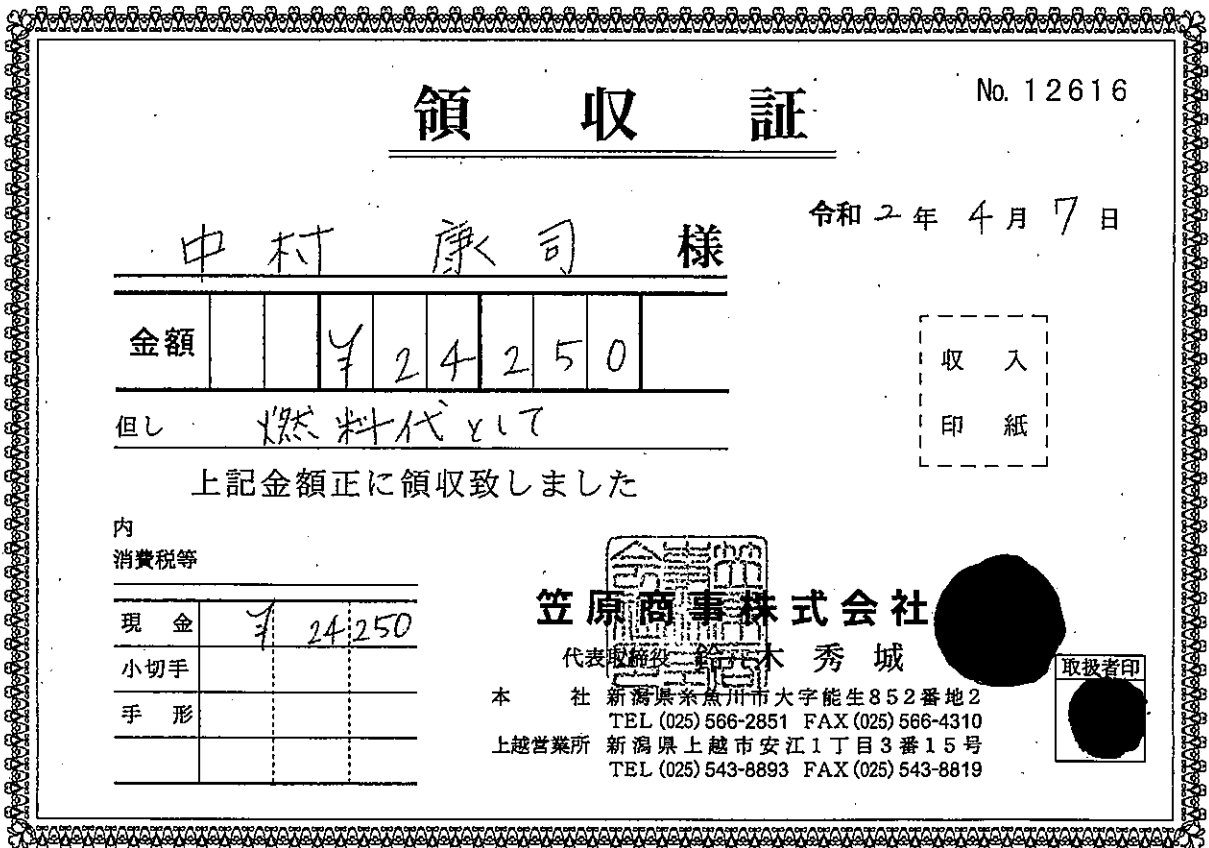 領収証
No. 12616
令和 2 年 4 月 7 日
中村 康司 様
金額 ¥24250
但し 燃料代として
収入
印紙
上記金額正に領収致しました
内
消費税等
現金 ¥ 24250
小切手
手形
笠原商事株式会社
代表取締役 鈴木秀城
取扱者印
本社 新潟県糸魚川市大字能生852番地2
TEL (025) 566-2851 FAX (025) 566-4310
上越営業所 新潟県上越市安江1丁目3番15号
TEL (025) 543-8893 FAX (025) 543-8819